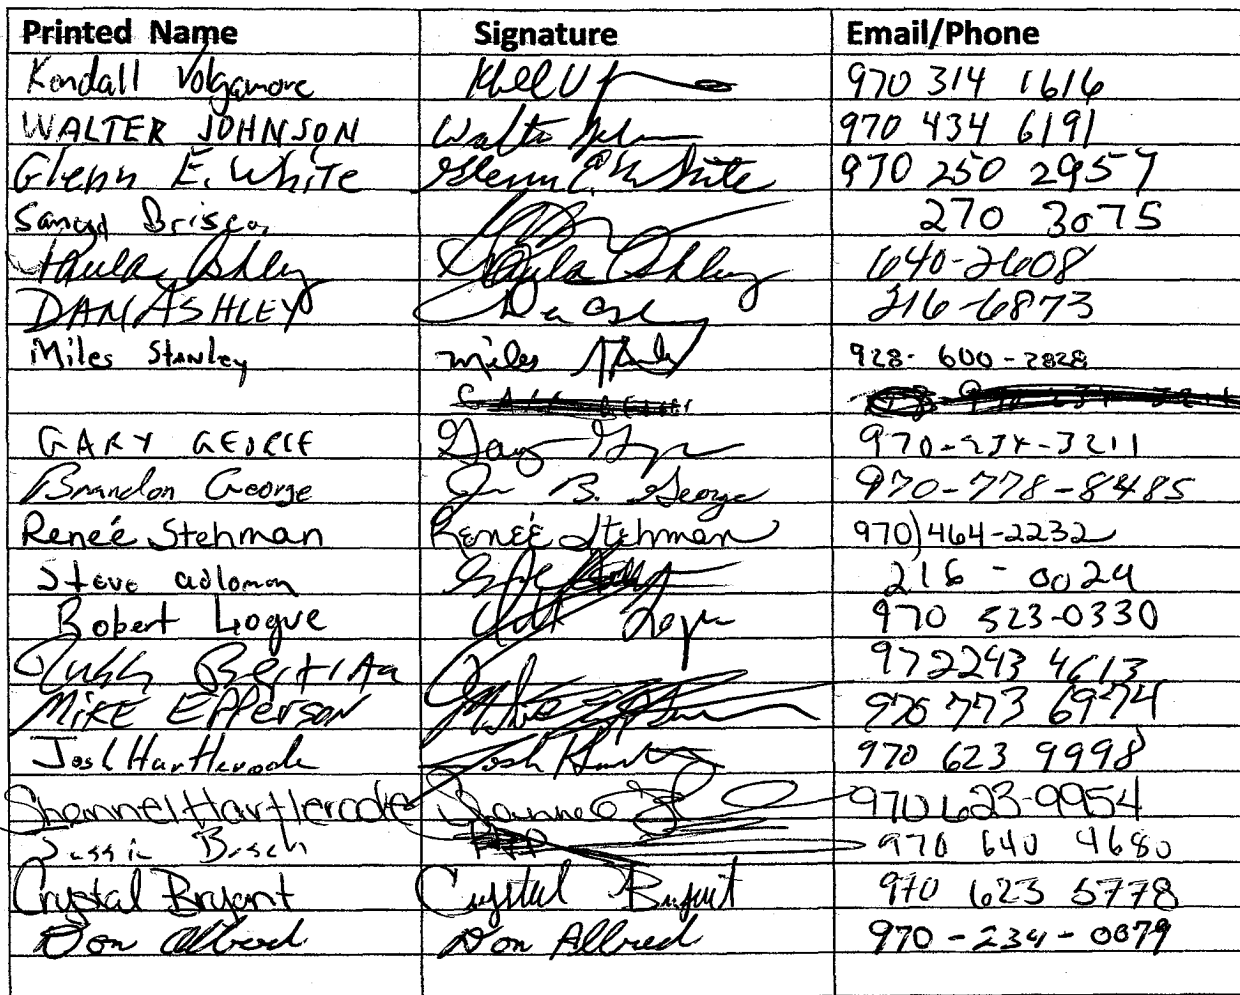 Printed Name Signature Email/Phone
Kendall Volgamore 970 314 1616
WALTER JOHNSON Walter 970 434 6191
Glenn E. White Glenn E. White 970 250 2957
Brisco 270 3075
Paula Ashley Paula Ashley 640-2608
DAN ASHLEY 216-6873
Miles Stanley Miles 928-600-2828
GARY GEORGE Gary 970-234-3211
Brandon George B. George 970-778-8485
Reneé Stehman Reneé Stehman 970)464-2232
Steve 216-0024
Robert Logue Logue 970 523-0330
4613
MIKE EPPERSON Mike 970 773 6974
Josh Hartlerode Josh 970 623 9998
Shannel Hartlerode 970 623-9954
970 640 4680
Crystal Bryant Crystal Bryant 970 623 5778
Don Allred Don Allred 970-234-0079